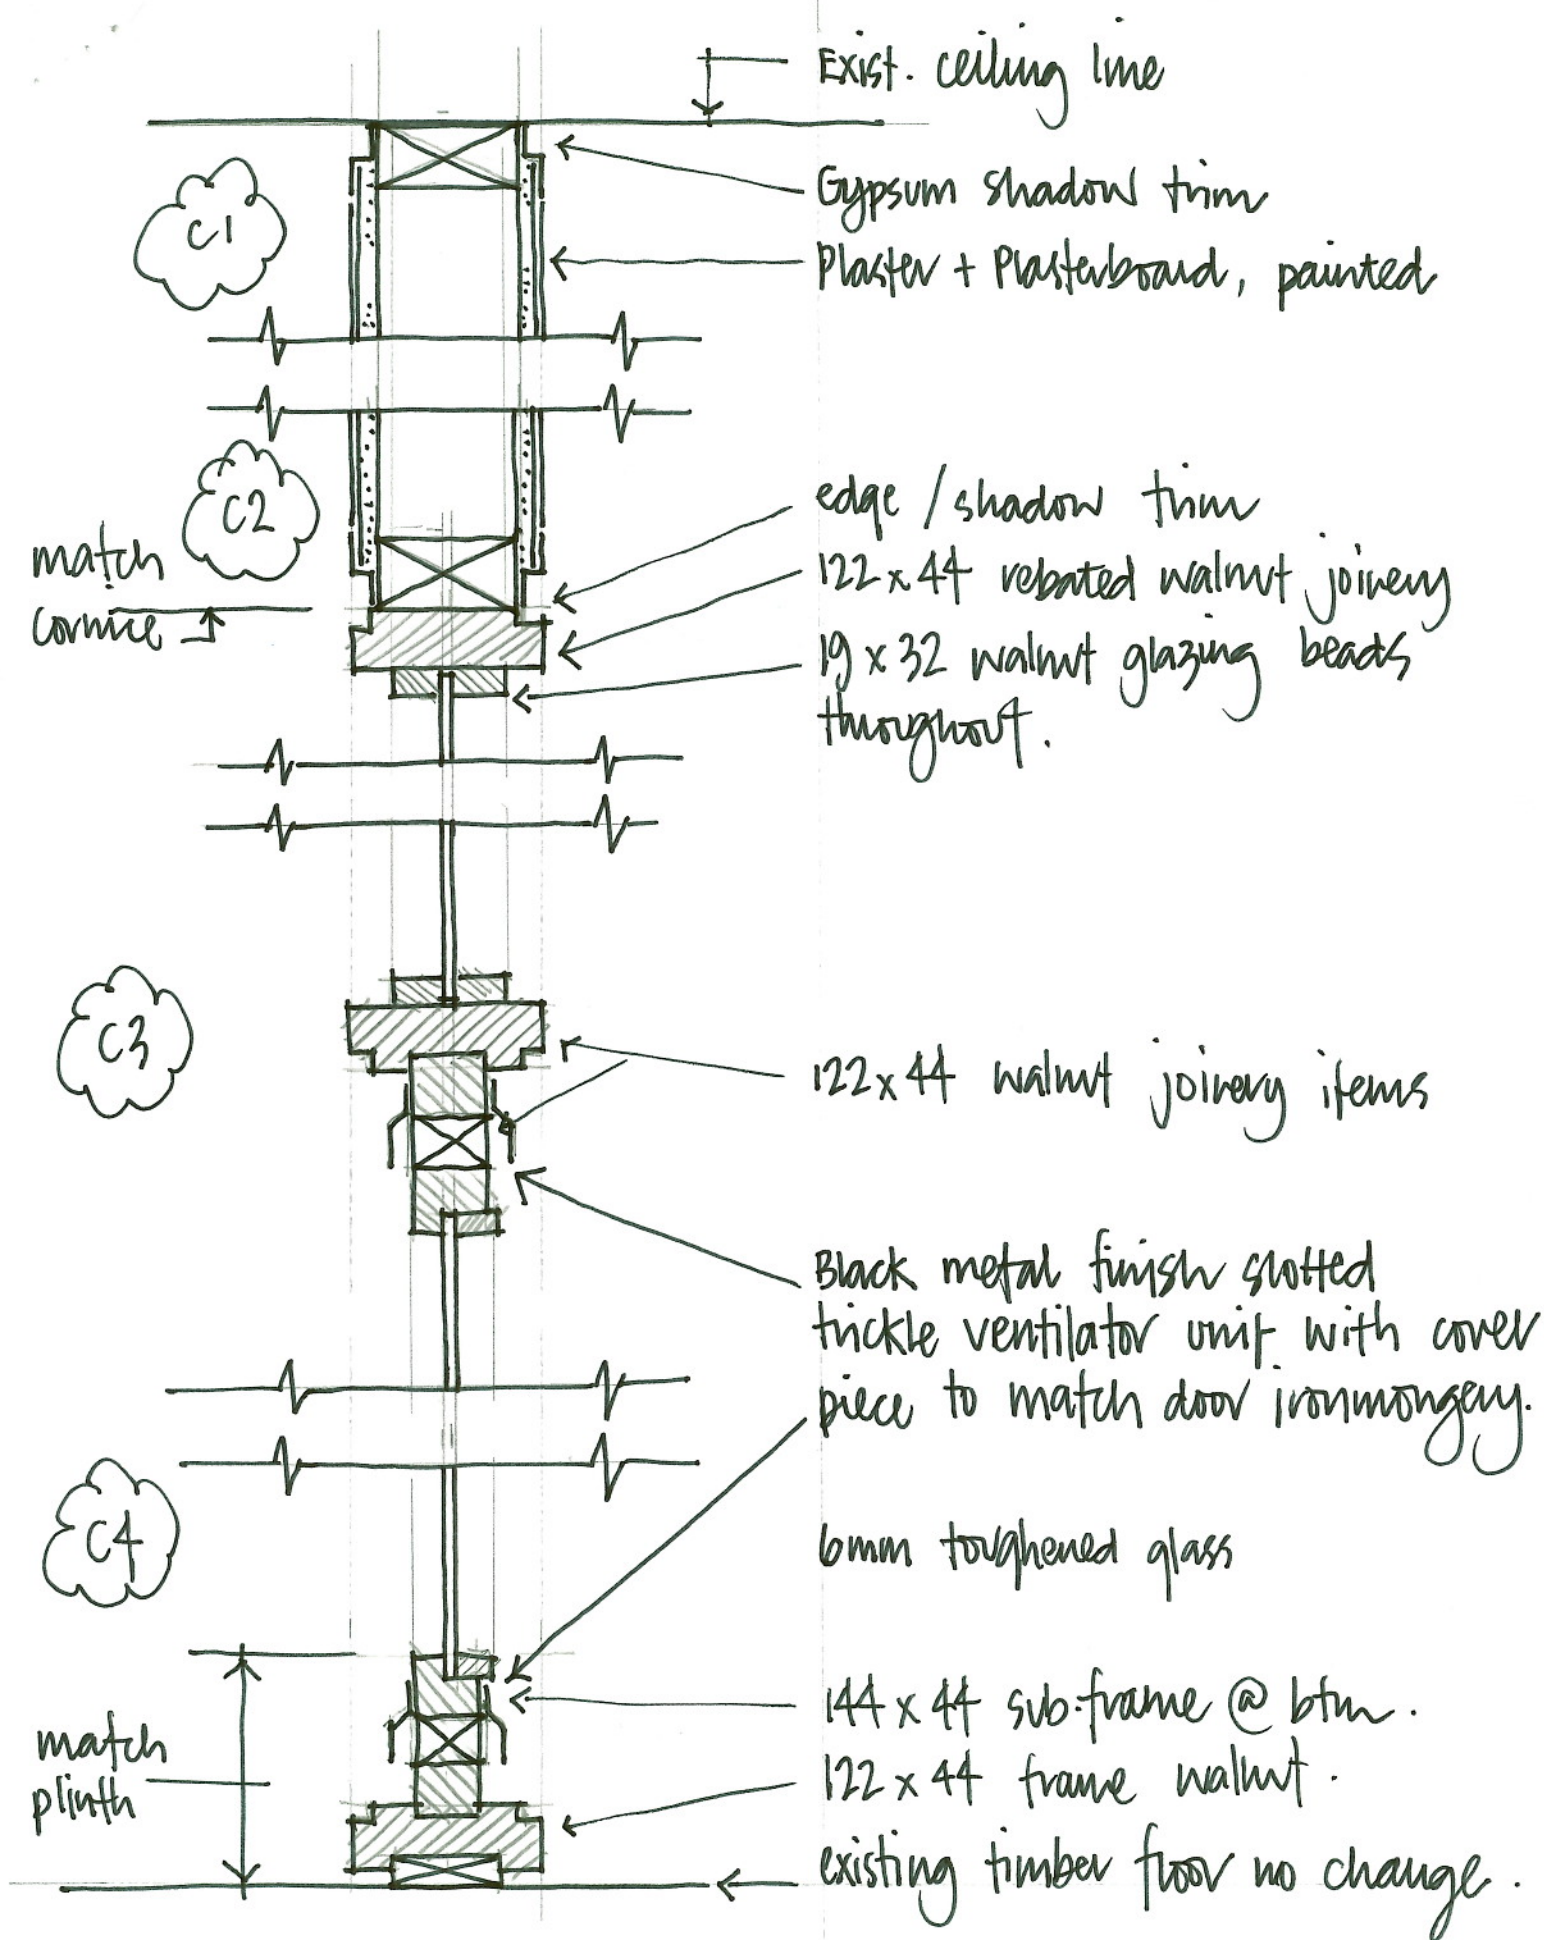 Exist. ceiling line
Gypsum shadow trim
Plaster + Plasterboard, painted
C1
C2
match
cornice
edge / shadow trim
122 x 44 rebated walnut joinery
19 x 32 walnut glazing beads
throughout.
C3
122 x 44 walnut joinery items
Black metal finish slotted
trickle ventilator unit with cover
piece to match door ironmongery.
C4
6mm toughened glass
match
plinth
144 x 44 sub-frame @ btm.
122 x 44 frame walnut.
existing timber floor no change.